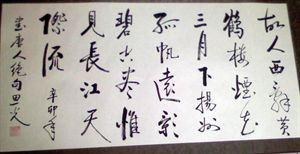 故人西辭黃
鶴樓煙花
三月下揚州
孤帆遠影
碧空尽惟
見長江天
際流 辛卯年
唐人絕句